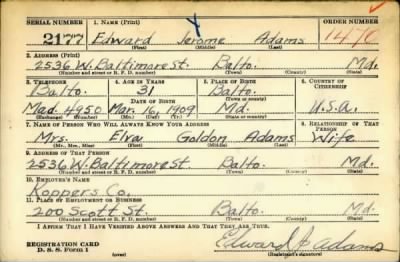 SERIAL NUMBER 1. NAME (Print) ORDER NUMBER
2177 Edward Jerome Adams 1470
(First) (Middle) (Last)
2. ADDRESS (Print)
2536 W. Baltimore St. Balto. Md.
(Number and street or R. F. D. number) (Town) (County) (State)
3. TELEPHONE 4. AGE IN YEARS 5. PLACE OF BIRTH 6. COUNTRY OF CITIZENSHIP
Balto. 31 Balto.
DATE OF BIRTH (Town or county)
Mad. 4950 Mar. 16, 1909 Md. U.S.A.
(Exchange) (Number) (Mo.) (Day) (Yr.) (State or country)
7. NAME OF PERSON WHO WILL ALWAYS KNOW YOUR ADDRESS 8. RELATIONSHIP OF THAT PERSON
Mrs. Elva Goldon Adams Wife
(Mr., Mrs., Miss) (First) (Middle) (Last)
9. ADDRESS OF THAT PERSON
2536 W. Baltimore St. Balto. Md.
(Number and street or R. F. D. number) (Town) (County) (State)
10. EMPLOYER'S NAME
Koppers Co.
11. PLACE OF EMPLOYMENT OR BUSINESS
200 Scott St. Balto. Md.
(Number and street or R. F. D. number) (Town) (County) (State)
I AFFIRM THAT I HAVE VERIFIED ABOVE ANSWERS AND THAT THEY ARE TRUE.
REGISTRATION CARD
D. S. S. Form 1 (over) Edward J Adams
(Registrant's signature)